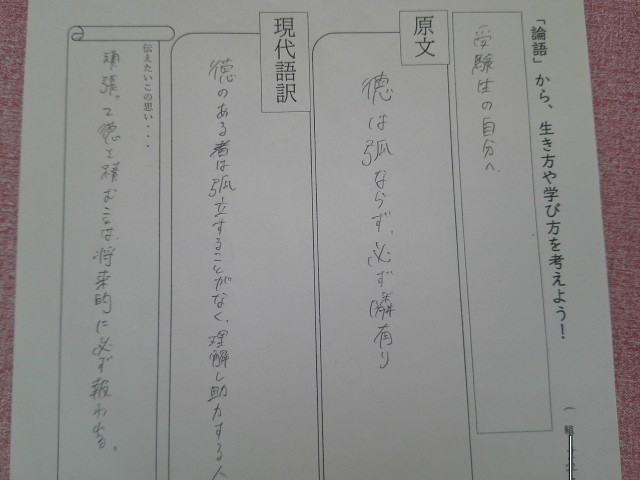 「論語」から、生き方や学び方を考えよう！
（　組
受験生の自分へ
原文
徳は弧ならず、必ず隣有り
現代語訳
徳のある者は弧立することがなく、理解し助力する人
伝えたいこの思い・・・
頑張って徳を積むことは、将来的に必ず報われる。